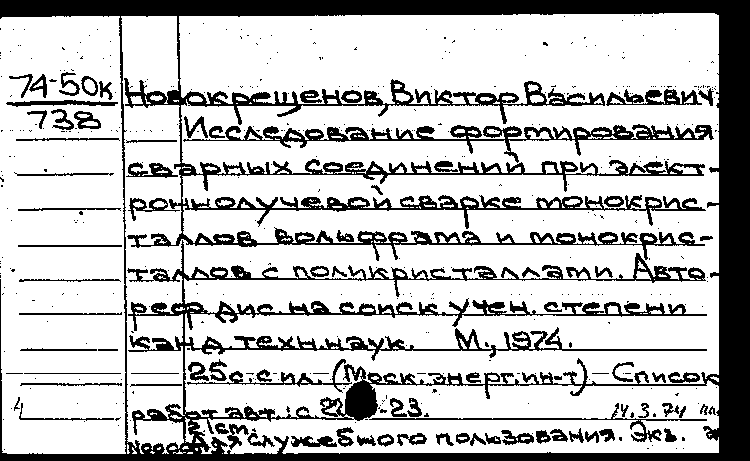 74-50к
738
Новокрещенов, Виктор Васильевич.
Исследование формирования
сварных соединений при элект-
роннолучевой сварке монокрис-
таллов вольфрама и монокрис-
таллов с поликристаллами. Авто-
реф. дис. на соиск. учен. степени
канд. техн. наук. М., 1974.
25 с. с ил. (Моск. энерг. ин-т). Список
работ авт.: с. -23. 14.3.74
Для служебного пользования. Экз.